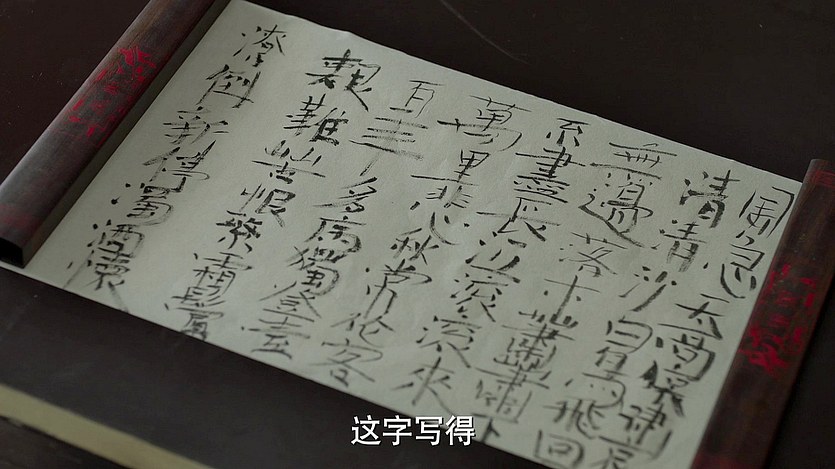 風急天高猿嘯哀
渚清沙白鳥飛回
無邊落木蕭蕭下
不盡長江滾滾來
萬里悲秋常作客
百年多病獨登臺
艱難苦恨繁霜鬢
潦倒新停濁酒
这字写得